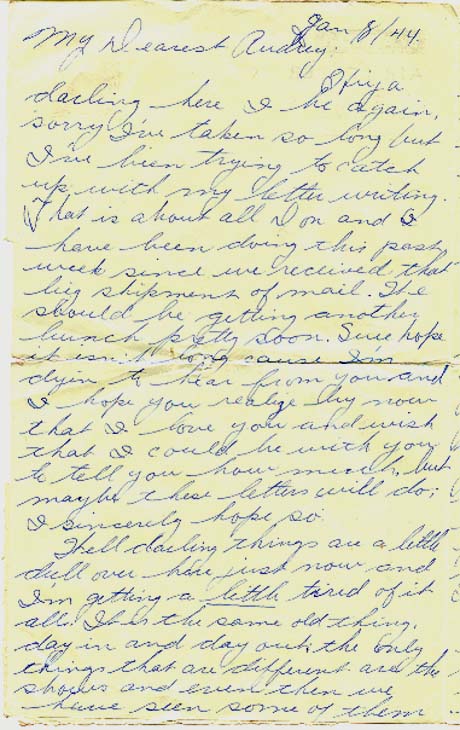 Jan 8/44.
My Dearest Audrey:
Hiya
darling here I be again,
sorry I've taken so long but
I've been trying to catch
up with my letter writing.
That is about all Don and I
have been doing this past
week since we received that
big shipment of mail. We
should be getting another
bunch pretty soon. Sure hope
it isn't long cause I'm
dyin to hear from you and
I hope you realize by now
that I love you and wish
that I could be with you
to tell you how much, but
maybe these letters will do;
I sincerely hope so.
Well darling things are a little
dull over here just now and
I'm getting a little tired of it
all. It is the same old thing,
day in and day out, the only
things that are different are the
shows and even then we
have seen some of them